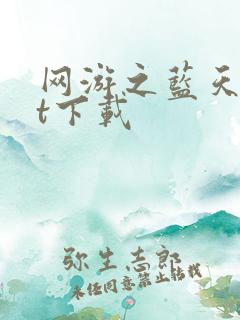 网游之蓝天
t下载
弥生志郎
未经同意禁止转载